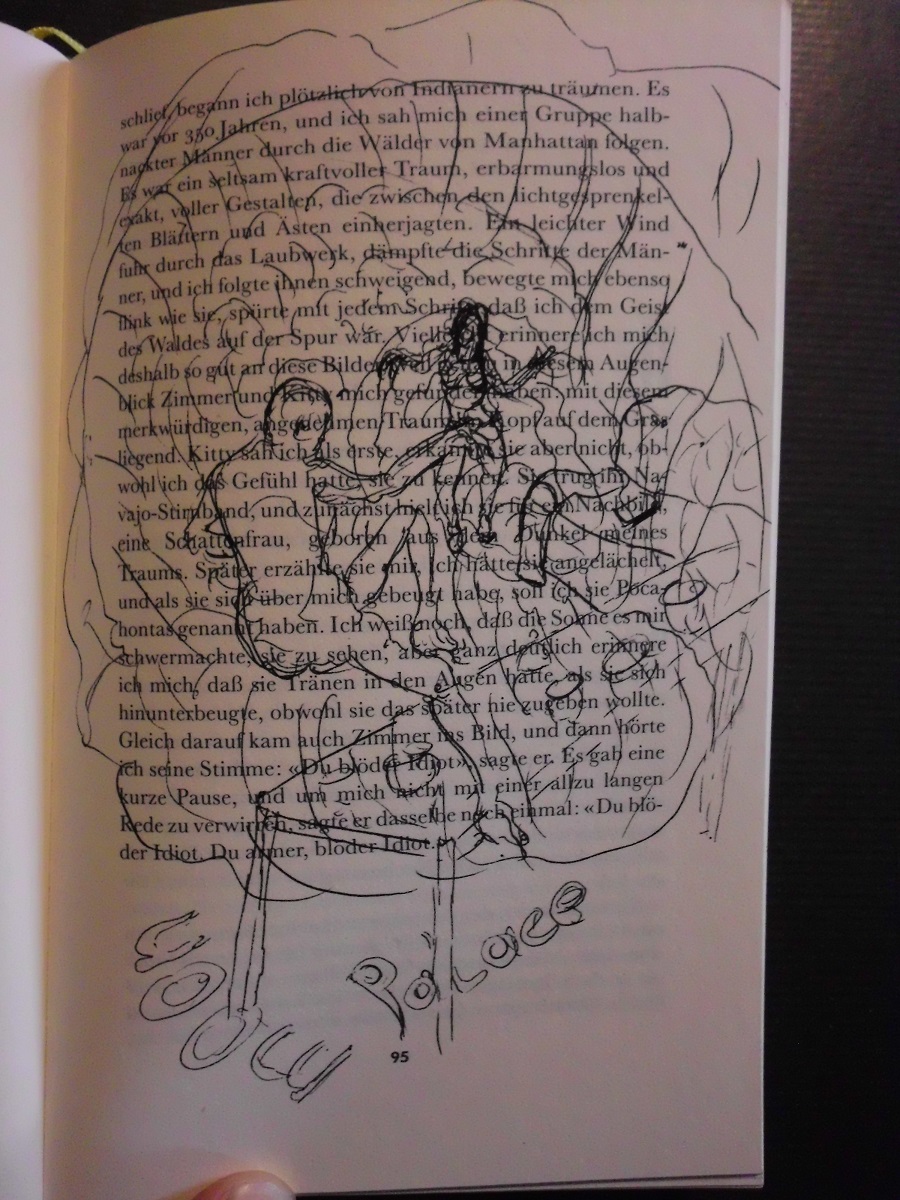 schlief, begann ich plötzlich von Indianern zu träumen. Es
war vor 350 Jahren, und ich sah mich einer Gruppe halb-
nackter Männer durch die Wälder von Manhattan folgen.
Es war ein seltsam kraftvoller Traum, erbarmungslos und
exakt, voller Gestalten, die zwischen den lichtgesprenkel-
ten Blättern und Ästen einherjagten. Ein leichter Wind
fuhr durch das Laubwerk, dämpfte die Schritte der Män-
ner, und ich folgte ihnen schweigend, bewegte mich ebenso
flink wie sie, spürte mit jedem Schritt, daß ich dem Geist
des Waldes auf der Spur war. Vielleicht erinnere ich mich
deshalb so gut an diese Bilder, weil in diesem Augen-
blick Zimmer und Kitty mich gefunden haben: mit diesem
merkwürdigen, angenehmen Traum im Kopf auf dem Gras
liegend. Kitty sah ich als erste, erkannte sie aber nicht, ob-
wohl ich das Gefühl hatte, sie zu kennen. Sie trug ihr Na-
vajo-Stirnband, und zunächst hielt ich sie für ein Nachbild,
eine Schattenfrau, geboren aus dem Dunkel meines
Traums. Später erzählte sie mir, ich hätte sie angelächelt,
und als sie sich über mich gebeugt habe, soll ich sie Poca-
hontas genannt haben. Ich weiß noch, daß die Sonne es mir
schwermachte, sie zu sehen, aber ganz deutlich erinnere
ich mich, daß sie Tränen in den Augen hatte, als sie sich
hinunterbeugte, obwohl sie das später nie zugeben wollte.
Gleich darauf kam auch Zimmer ins Bild, und dann hörte
ich seine Stimme: «Du blöder Idiot», sagte er. Es gab eine
kurze Pause, und um mich nicht mit einer allzu langen
Rede zu verwirren, sagte er dasselbe noch einmal: «Du blö-
der Idiot. Du armer, blöder Idiot.»
Palace
95